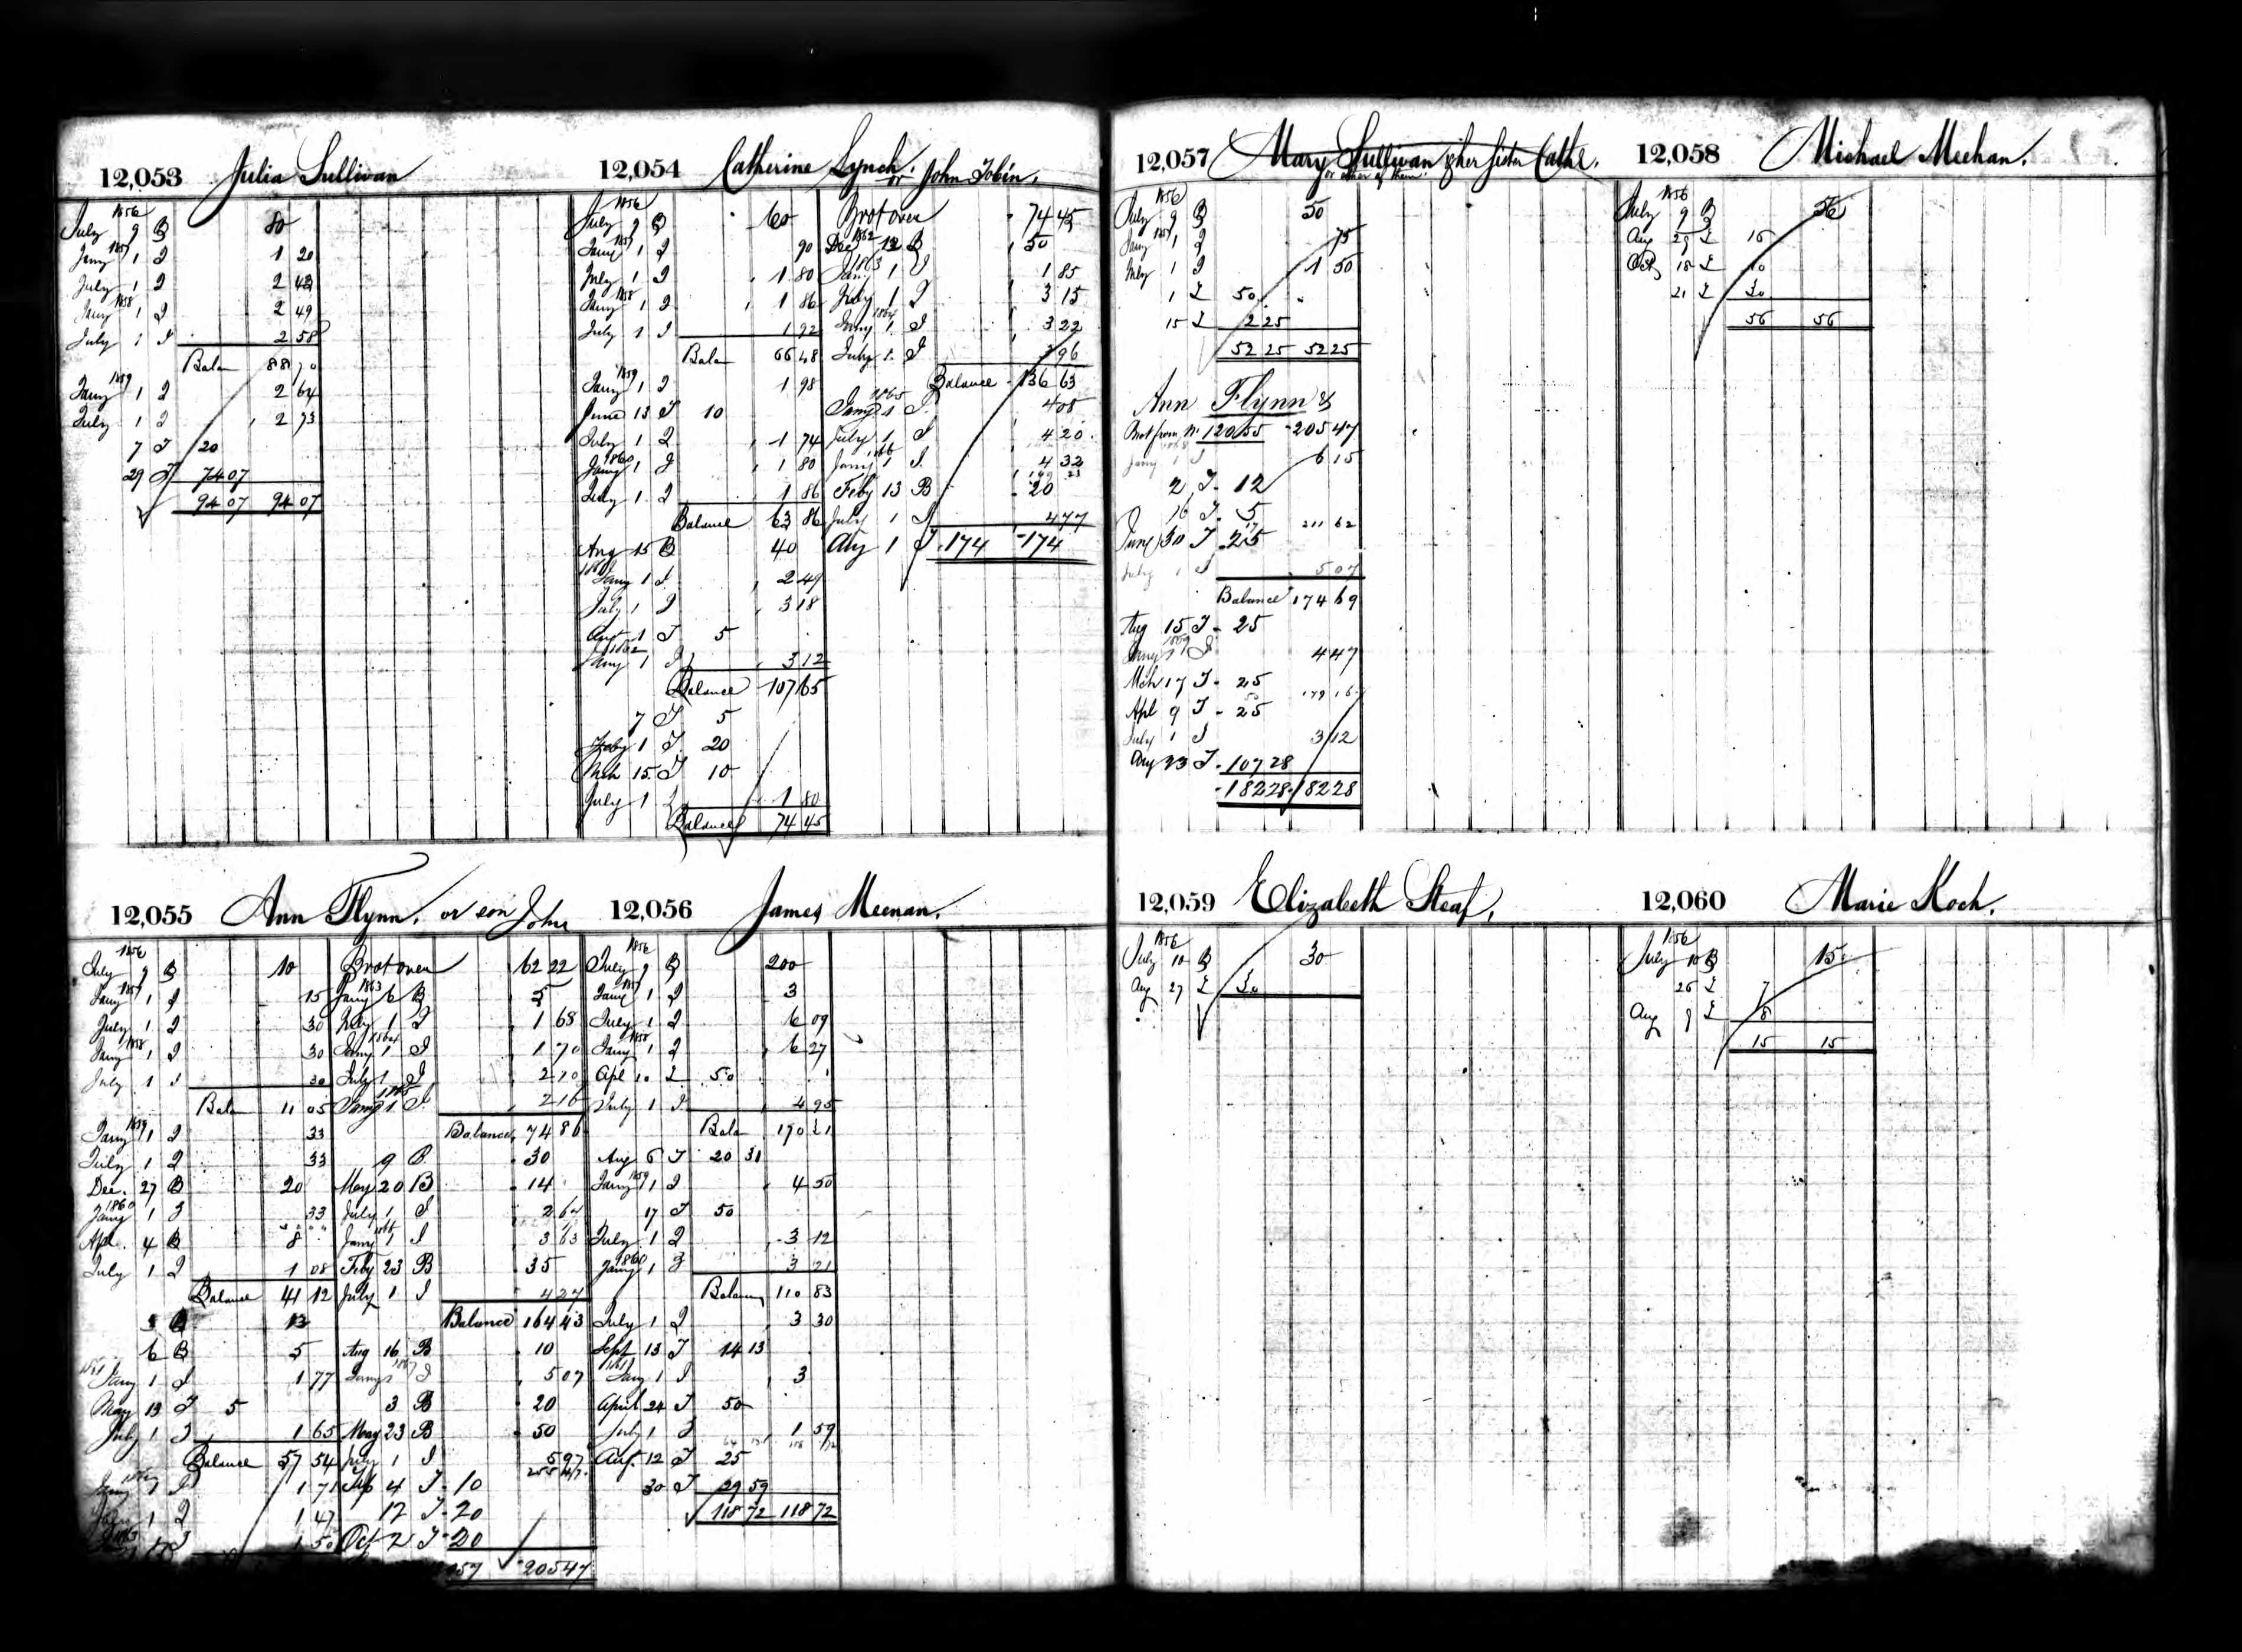 12,053 Julia Sullivan
1856
July 9 B 80
Jany 1857 1 I 1 20
July 1 I 2 43
Jany 1858 1 I 2 49
July 1 I 2 58
Balan 88 70
Jany 1859 1 I 2 64
July 1 I 2 73
7 T 20
29 T 74 07
94 07 94 07
12,054 Catherine Lynch or John Tobin,
1856
July 9 B 60
Jany 1857 1 I 90
July 1 I 1 80
Jany 1858 1 I 1 86
July 1 I 1 92
Balan 66 48
Jany 1859 1 I 1 98
June 13 T 10
July 1 I 1 74
Jany 1860 1 I 1 80
July 1 I 1 86
Balance 63 86
Aug 15 B 40
1861
Jany 1 I 2 49
July 1 I 3 18
Augt 1 T 5
1862
Jany 1 I 3 12
Balance 107 65
7 T 5
Feby 1 T 20
Mch 15 T 10
July 1 I 1 80
Balance 74 45
Brot over 74 45
Dec 1862 12 B 50
1863
Jany 1 I 1 85
July 1 I 3 15
1864
Jany 1 I 3 22
July 1 I 3 96
Balance 136 63
1865
Jany 1 I 4 08
July 1 I 4 20
1866
Jany 1 I 4 32
149 23
Feby 13 B 20
July 1 I 4 77
Aug 1 T 174 174
12,055 Ann Flynn, or son John
1856
July 9 B 10
Jany 1857 1 I 15
July 1 I 30
Jany 1858 1 I 30
July 1 I 30
Balan 11 05
Jany 1859 1 I 33
July 1 I 33
Dec. 27 B 20
1860
Jany 1 I 33
Apl. 4 B 8
July 1 I 1 08
Balance 41 12
3 B 13
6 B 5
1861 Jany 1 I 1 77
May 13 T 5
July 1 I 1 65
Balance 57 54
1 I 1 71
1 I 1 47
1 50
Brot over 62 22
1863
Jany 6 B 5
July 1 I 1 68
1864
Jany 1 I 1 70
July 1 I 2 10
1865
Jany 1 I 2 16
Balance 74 86
9 B 30
May 20 B 14
July 1 I 2 64
1866
Jany 1 I 3 63
Feby 23 B 35
July 1 I 4 27
Balance 164 43
Aug 16 B 10
1867
Jany 1 I 5 07
3 B 20
May 23 B 50
July 1 I 5 97
255 47
Sep 4 T 10
12 T 20
Oct 2 T 20
205 47
12,056 James Meenan.
1856
July 9 B 200
Jany 1857 1 I 3
July 1 I 6 09
Jany 1858 1 I 6 27
Apl 10 T 50
July 1 I 4 95
Balan 170 31
Aug 6 T 20 31
Jany 1859 1 I 4 50
17 T 50
July 1 I 3 12
1860
Jany 1 I 3 21
Balance 110 83
July 1 I 3 30
Sept 13 T 14 13
1861
Jany 1 I 3
April 24 T 50
July 1 I 1 59
Aug. 12 T 25
30 T 29 59
118 72 118 72
12,057 Mary Sullivan & her sister Cathe.
or either of them
1856
July 9 B 50
Jany 1857 1 I 75
July 1 I 1 50
1 T 50
15 T 2 25
52 25 52 25
Ann Flynn &
Brot from No 12055 205 47
1868
Jany 1 I 6 15
2 T 12
16 T 5
211 62
June 30 T 25
July 1 I 5 07
Balance 174 69
Aug 15 T 25
1869
Jany 1 I 4 47
Mch 17 T 25
179 16
Apl 9 T 25
July 1 I 3 12
Aug 23 T 107 28
182 28 182 28
12,058 Michael Meehan.
1856
July 9 B 56
Aug 29 T 16
Oct 18 T 10
21 T 30
56 56
12,059 Elizabeth Steaf,
1856
July 10 B 30
Aug 27 T 30
12,060 Marie Koch.
1856
July 10 B 15
26 T 7
Aug 9 T 8
15 15